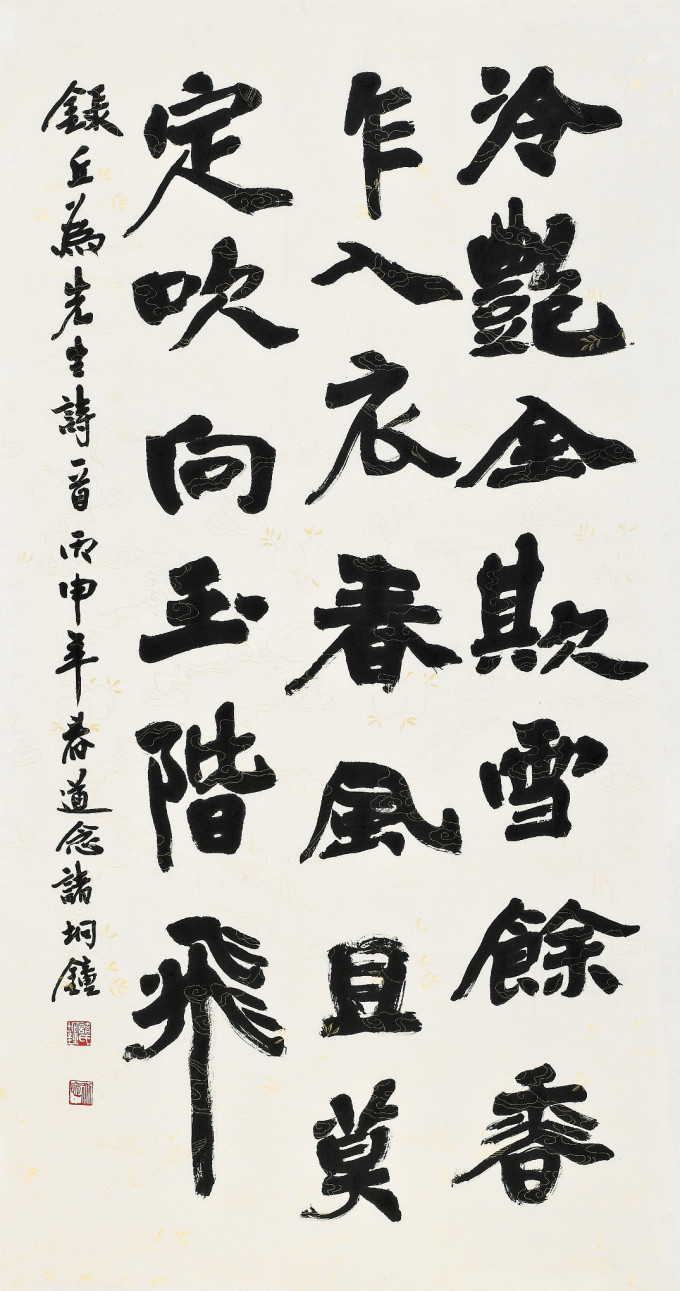 冷艷全欺雪餘香
乍入衣春風且莫
定吹向玉階飛
錄丘為先生詩一首丙申年春道念諸坰鐘